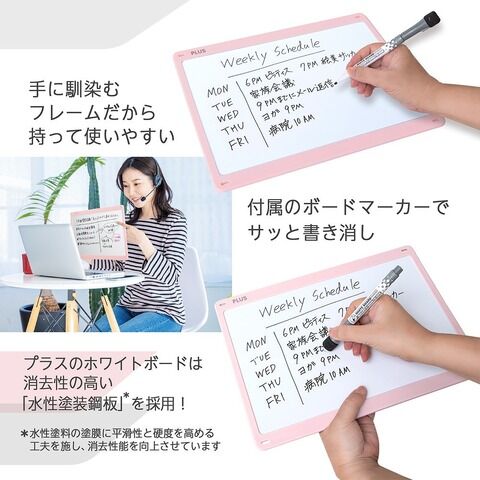 手に馴染む
フレームだから
持って使いやすい
PLUS
Weekly Schedule
MON 6PM ピラティス 7PM 純美サッカー
TUE 家族会議
WED 9PMまでにメール返信
THU ヨガ 9PM
FRI 病院 10AM
付属のボードマーカーで
サッと書き消し
PLUS
Weekly Schedule
MON 6PM ピラティス
TUE 家族会議
WED 9PMま
THU ヨガ 9PM
FRI 病院 10AM
プラスのホワイトボードは
消去性の高い
「水性塗装鋼板」*を採用！
＊水性塗料の塗膜に平滑性と硬度を高める
工夫を施し、消去性能を向上させています